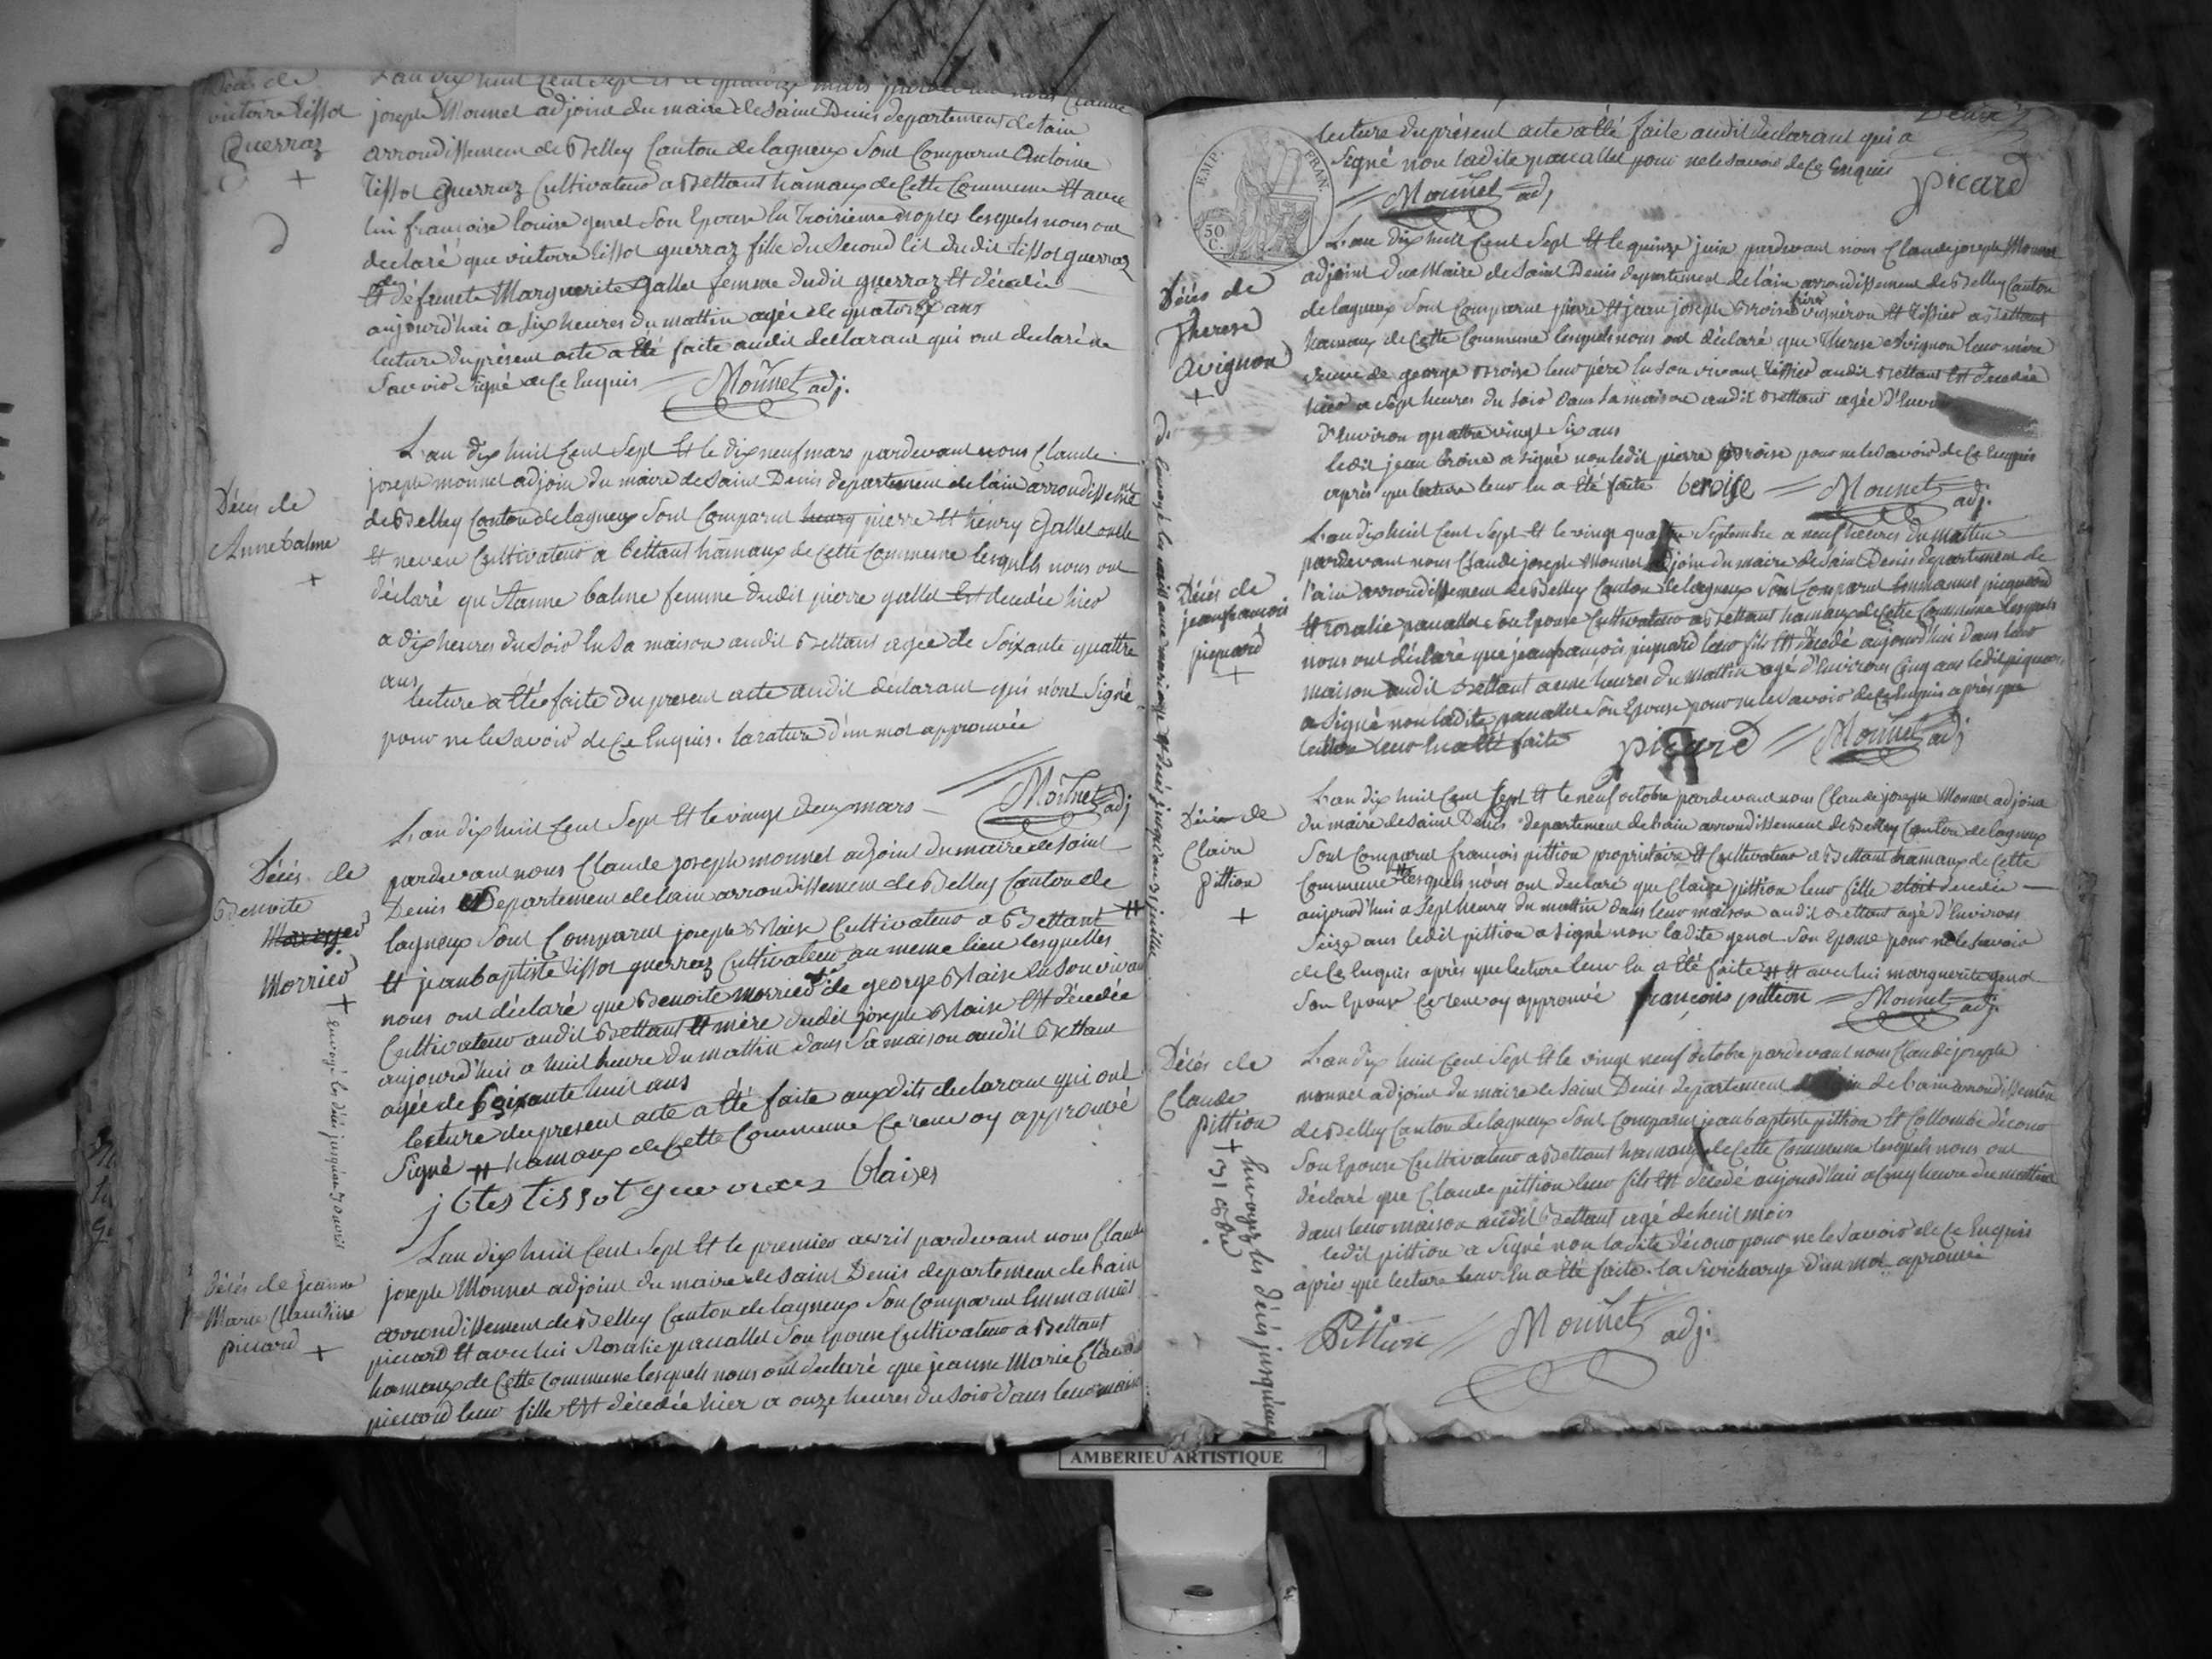 Décès de
victoire tissot
Guerraz
+
L'an dix huit Cent Sept et le quatorze mars pardevant nous Claude
joseph Monnet adjoint du maire de Saint Denis departement de lain
arrondissement de Belley Canton de lagneux Sont Comparut Antoine
tissot guerraz Cultivateur a Bettant hamaux de Cette Commune Et avec
lui françoise louise genet Son Epouse En troisieme noples lesquels nous ont
declaré que victoire tissot guerraz fille du Second lit dudit tissot guerraz
Et de défuncte Marguerite Gallet femme dudit guerraz Et décedée
aujourd'hui a Six heures du mattin agée de quatorze ans
lecture du présent acte a Eté faite audit declarant qui ont declaré ne
Savoir Signé de Ce Enquis Monnet adj.
Décès de
Anne balme
+
L'an dix huit Cent Sept Et le dix neuf mars pardevant nous Claude
joseph monnet adjoin du maire de Saint Denis departement de lain arrondissement
de Belley Canton de lagneux Sont Comparut henry pierre Et henry Gallet oncle
Et neveu Cultivateur a bettant hamaux de Cette Commune lesquels nous ont
déclaré qu'Anne balme femme dudit pierre gallet Est decedée hier
a dix heures du Soir En Sa maison audit Bettant agée de Soixante quattre
ans
lecture a Eté faite du present acte audit déclarant qui n'ont Signé
pour ne le Savoir de Ce Enquis. la rature d'un mot approuvée
Monnet adj
Décès de
Benoite
Morrier
+
L'an dix huit Cent Sept Et le vingt deux mars
pardevant nous Claude joseph monnet adjoint du maire de Saint
Denis Departement de lain arrondissement de Belley Canton de
lagneux Sont Comparut joseph Blaise Cultivateur a Bettant #
Et jean baptiste tissot guerraz Cultivateur au meme lieu lesquelles
nous ont déclaré que Benoite Morrier de george Blaise En Son vivant
Cultivateur audit Bettant Et mère dudit joseph Blaise Est décedée
aujourd'hui a huit heure du mattin dans Sa maison audit Bettant
agée de Soixante huit ans
lecture du present acte a Eté faite auxdits declarant qui ont
Signé # hamaux de Cette Commune Ce renvoy approuvé
jbtes tissot guerraz blaises
Envoyé les décès jusqu'au 30 avril
décès de jeanne
Marie Claudine
piccard +
L'an dix huit Cent Sept Et le premier avril pardevant nous Claude
joseph Monnet adjoint du maire de Saint Denis departement de lain
arrondissement de Belley Canton de lagneux Son Comparut Emmanuel
piccard Et avec lui Rosalie pacallet Son Epouse Cultivateur a Bettant
hamaux de Cette Commune lesquels nous ont declaré que jeanne Marie Claudine
piccard leur fille Est décedée hier a onze heures du Soir dans leur maison
EMP. FRAN.
50
C.
lecture du présent acte a Eté faite audit declarant qui a
Signé non ladite pacallet pour ne le Savoir de Ce Enquis
Monnet adj picard
Décès de
Therese
Avignon
+
L'an dix huit Cent Sept Et le quinze juin pardevant nous Claude joseph Monnet
adjoint du Maire de Saint Denis departement de lain arrondissement de Belley Canton
de lagneux Sont Comparut pierre Et jean joseph Broise frère vigneron Et tissier a Bettant
hamaux de Cette Commune lesquels nous ont déclaré que Therese Avignon leur mère
veuve de george Broise leur père En Son vivant tissier audit Bettant Est decedée
hier a Sept heures du Soir dans Sa maison audit Bettant agée d'Envi
d'Environ quattre vingt Six ans
ledit jean broise a Signé non ledit pierre Broise pour ne le Savoir de Ce Enquis
après que lecture leur En a Eté faite beroise Monnet adj.
Décès de
jean francois
piquard
+
L'an dix huit Cent Sept Et le vingt quatre Septembre a neuf heures du mattin
pardevant nous Claude joseph Monnet adjoin du maire de Saint Denis departement de
l'ain arrondissement de Belley Canton de lagneux Sont Comparut Emmanuel piquard
Et rosalie pacallet Son Epouse Cultivateur a Bettant hamaux de Cette Commune lesquels
nous ont déclaré que jean francois piquard leur fils Est décedé aujourd'hui dans leur
maison audit Bettant a une heures du mattin agé d'Environ Cinq ans ledit piquard
a Signé non ladite pacallet Son Epouse pour ne le Savoir de Ce Enquis après que
lecture leur En a Eté faite picard Monnet adj
Décès de
Claire
pittion
+
L'an dix huit Cent Sept Et le neuf octobre pardevant nous Claude joseph Monnet adjoint
du maire de Saint Denis departement de lain arrondissement de Belley Canton de lagneux
Sont Comparut francois pittion propriétaire Et Cultivateur a Bettant hamaux de Cette
Commune # lesquels nous ont declaré que Claire pittion leur fille etoit decedée
aujourd'hui a Sept heures du mattin dans leur maison audit Bettant agé d'Environ
Seize ans ledit pittion a Signé non ladite genod Son Epouse pour ne le Savoir
de Ce Enquis après que lecture leur En a Eté faite # Et avec lui marguerite genod
Son Epouse Ce renvoy approuvé francois pittion Monnet adj.
Décès de
Claude
pittion
+
L'an dix huit Cent Sept Et le vingt neuf octobre pardevant nous Claude joseph
monnet adjoint du maire de Saint Denis departement de lain arrondissement
de Belley Canton de lagneux Sont Comparut jean baptiste pittion Et Collombe décour
Son Epouse Cultivateur a Bettant hamaux de Cette Commune lesquels nous ont
déclaré que Claude pittion leur fils Est décedé aujourd'hui a Cinq heure du mattin
dans leur maison audit Bettant agé de huit mois
ledit pittion a Signé non ladite décour pour ne le Savoir de Ce Enquis
après que lecture leur En a Eté faite. la Surcharge d'un mot aprouvée
Pittion Monnet adj.
Envoyé les décès jusqu'au
31 8bre
AMBERIEU ARTISTIQUE